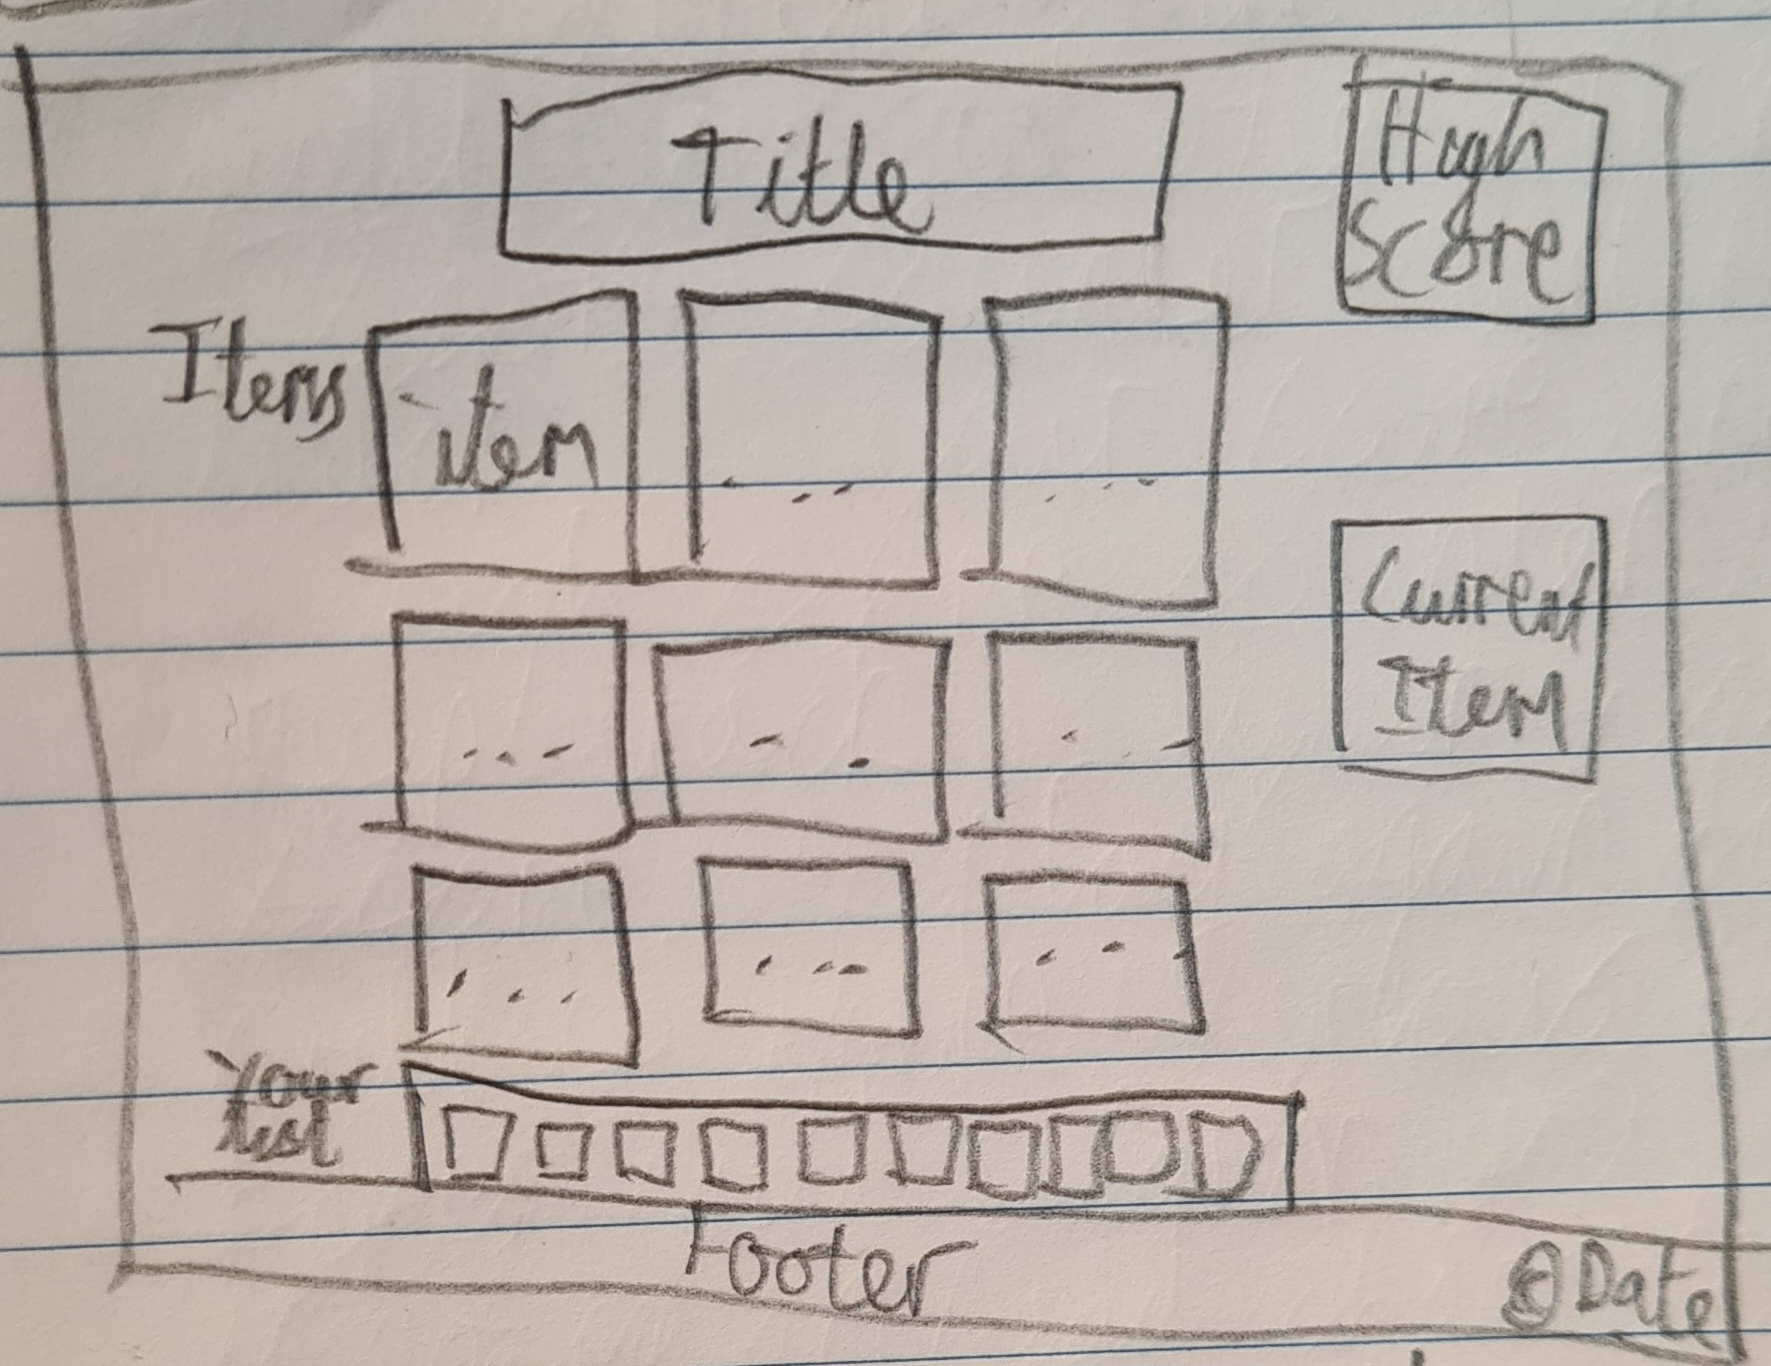 Title
High
Score
Items
item
...
...
Current
Item
...
...
...
...
...
...
Your
list
Footer
© Date